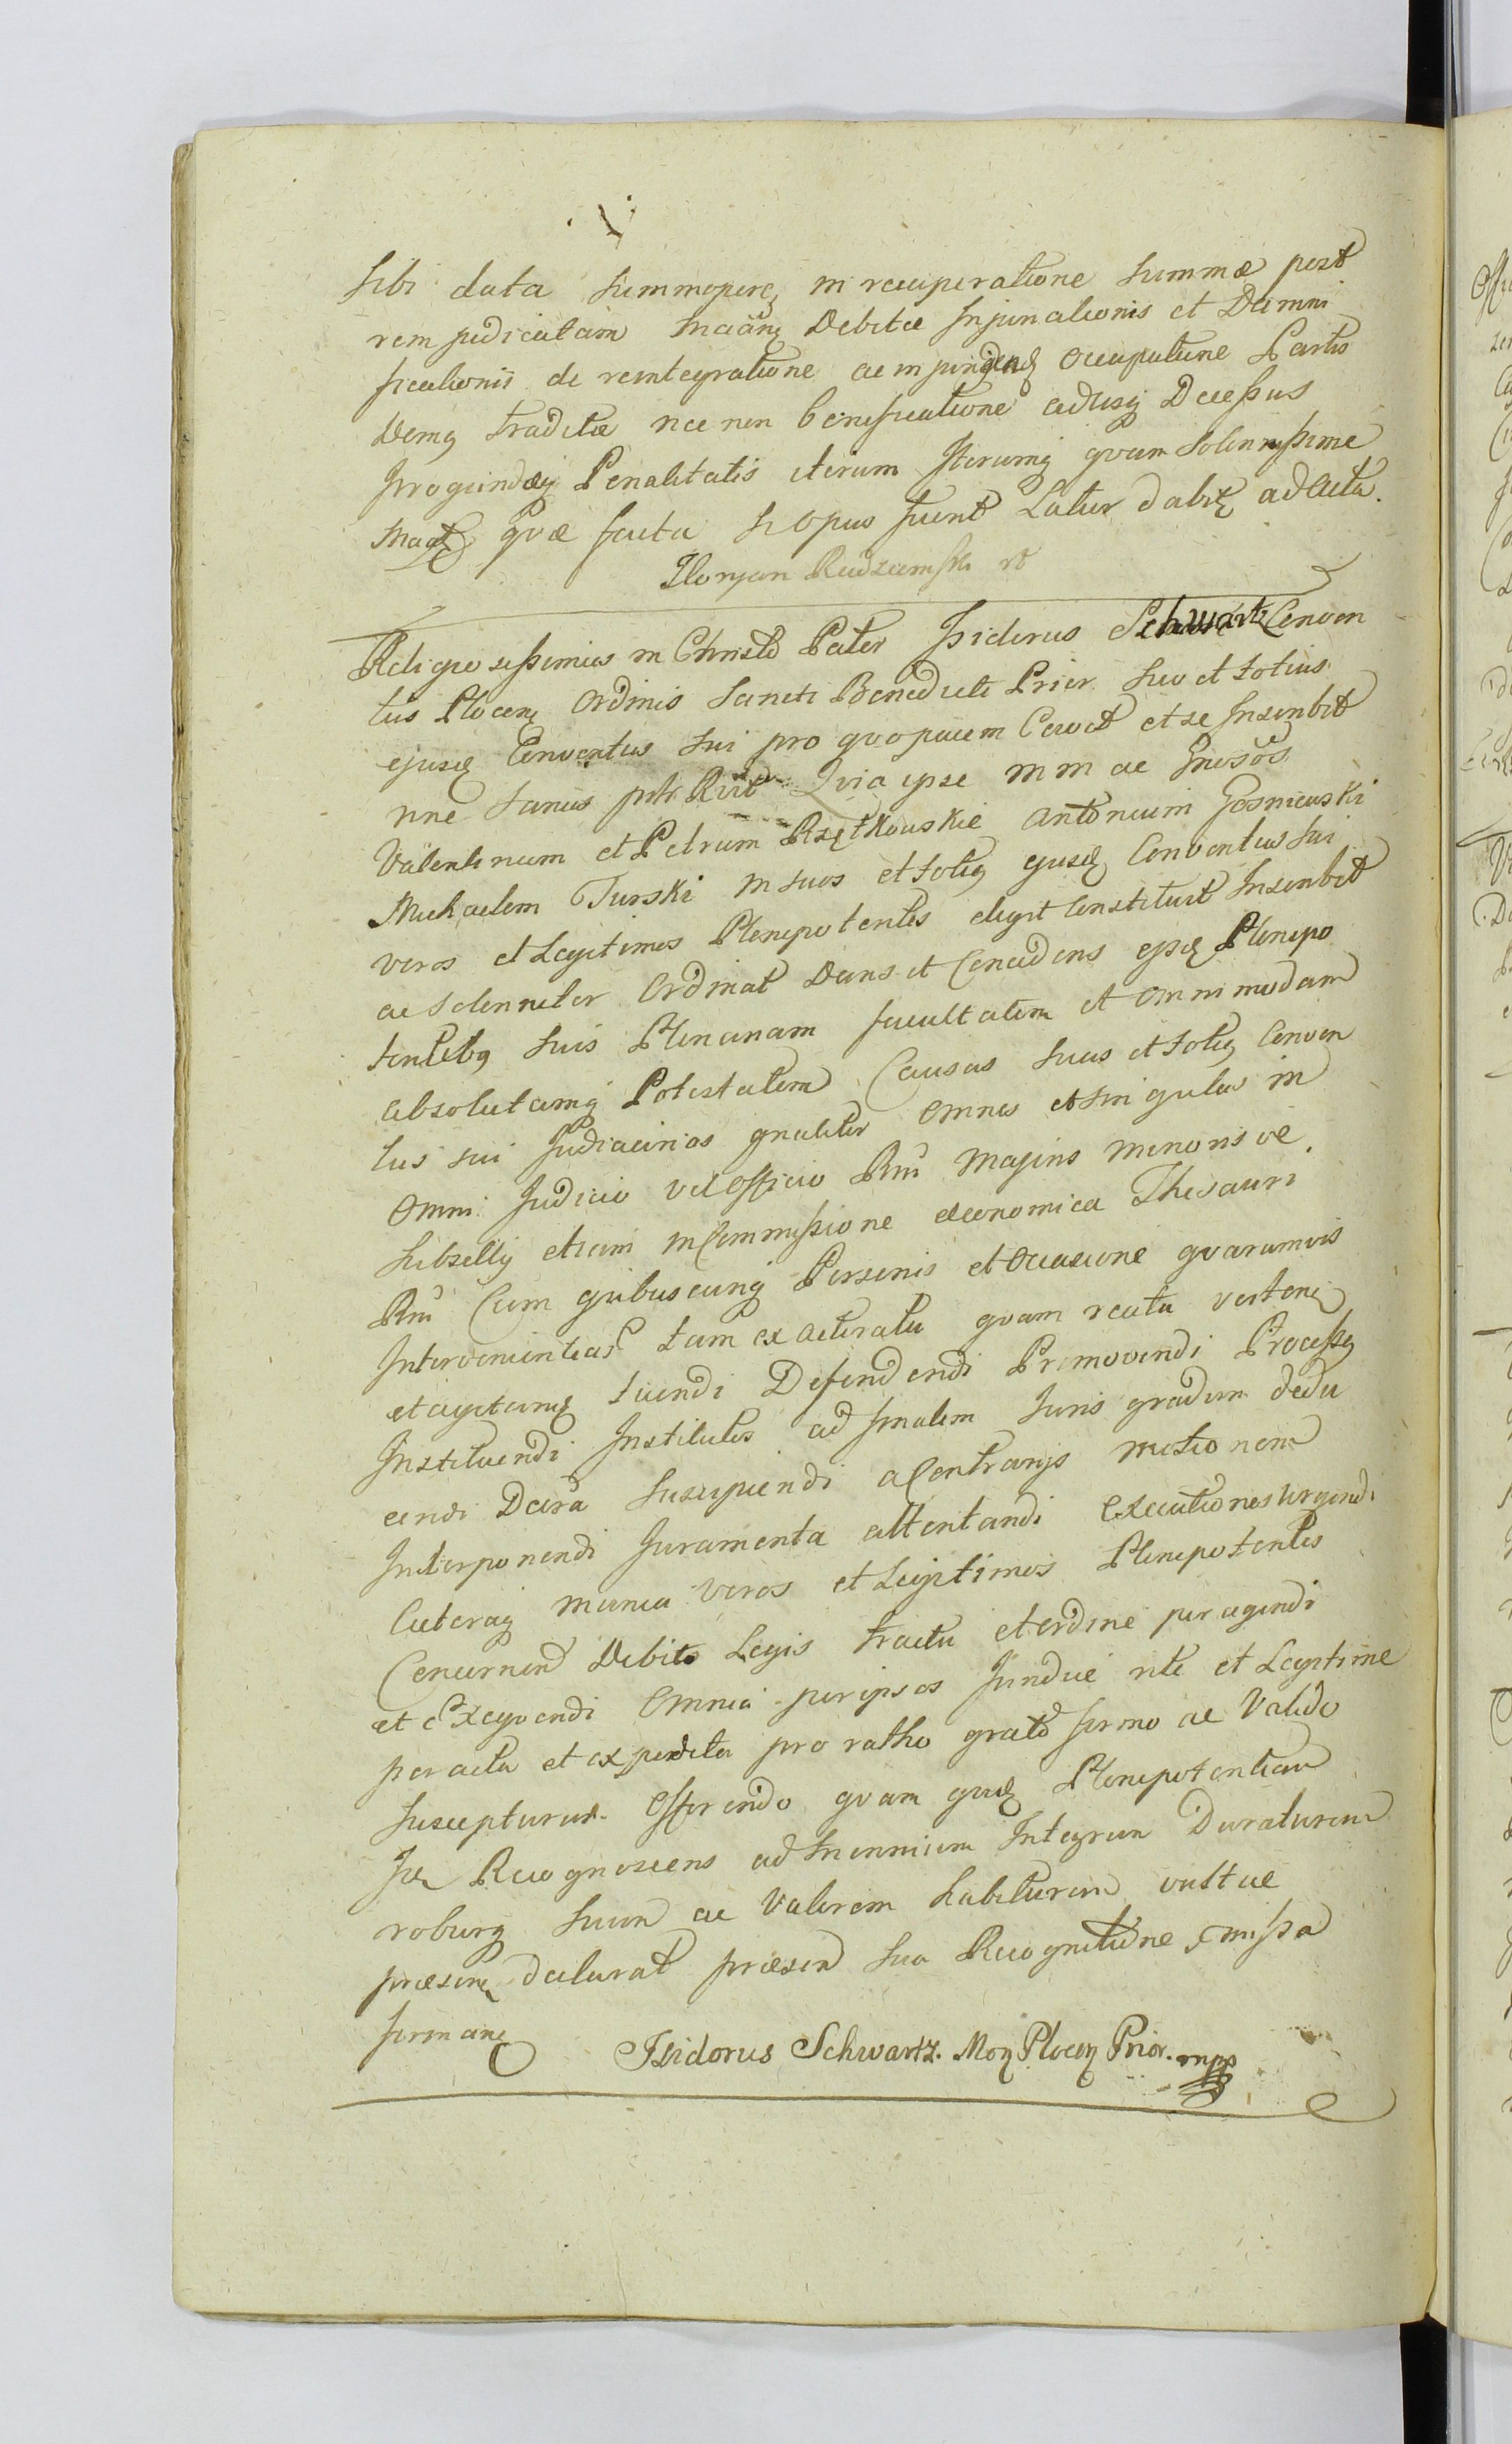 sibi data summopere in recuperatione summæ post
rem judicatam Debitæ Injunctionis et Damni
ficationis de reintegratione ac in jungend occupatione Partis
Demq tradita nec non bonificatione adusq Decessus
Penalitatis iterum Iterumq qvam Solennissime
qvæ facta si opus fuerit Latur dabit ad Acta.
Floryan Rudzamski
Religiosissimus in Christo Pater Isidorus Schwartz Conven
tus Plocens Ordinis Sancti Benedicti Prior suo et totius
ejusd Conventus sui pro qvo pacem Cavet et se Inscribit
nne Sanus qvia ipse M M ac Gnosos
Valentinum et Petrum Rzętkowskie Antonium Gosniewski
Michaelem Turski in suos et totiq ejusd Conventus sui
veros et Legitimos Plenipotentes elegit Constituit Inscribit
ac Solenniter Ordinat Dans et Concedens eisd Plenipo
tentibq suis Plenariam facultatem et omnimodam
absolutamq Potestatem Causas suas et totiq Conven
tus sui Judiciarias gnaliter omnes et singulas in
omni Judicio vel Officio Rni Majoris minorisve
subsellij etiam in Commissione œconomica Thesauri
Rni Cum qvibuscunq Personis et occasione qvarumvis
Intervenientias tam ex Actoratu qvam reatu verten
et agitang tuendi Defendendi Promovendi Processq
Instituendi Institutos ad finalem Juris gradum dedu
cendi Dcira suscipiendi a Contrarijs motionem
Interponendi Juramenta attentandi executiones urgendi
Cæteraq munia veros et Legitimos Plenipotentes
Concernen Debito Legis tractu et ordine peragendi
et Exeqvendi omnia per ipsos rite et Legitime
peracta et expedita pro ratho grato firmo ac Valido
suscepturum offerendo qvam qvid Plenipotentiam
Recognoscens ad triennium Integrum Duraturam
roburq suum ac Valorem habituram vult ac
præsen declarat præsen sua Recognitione missa
firman
Isidorus Schwartz. Mon Plocen Prior. mpp